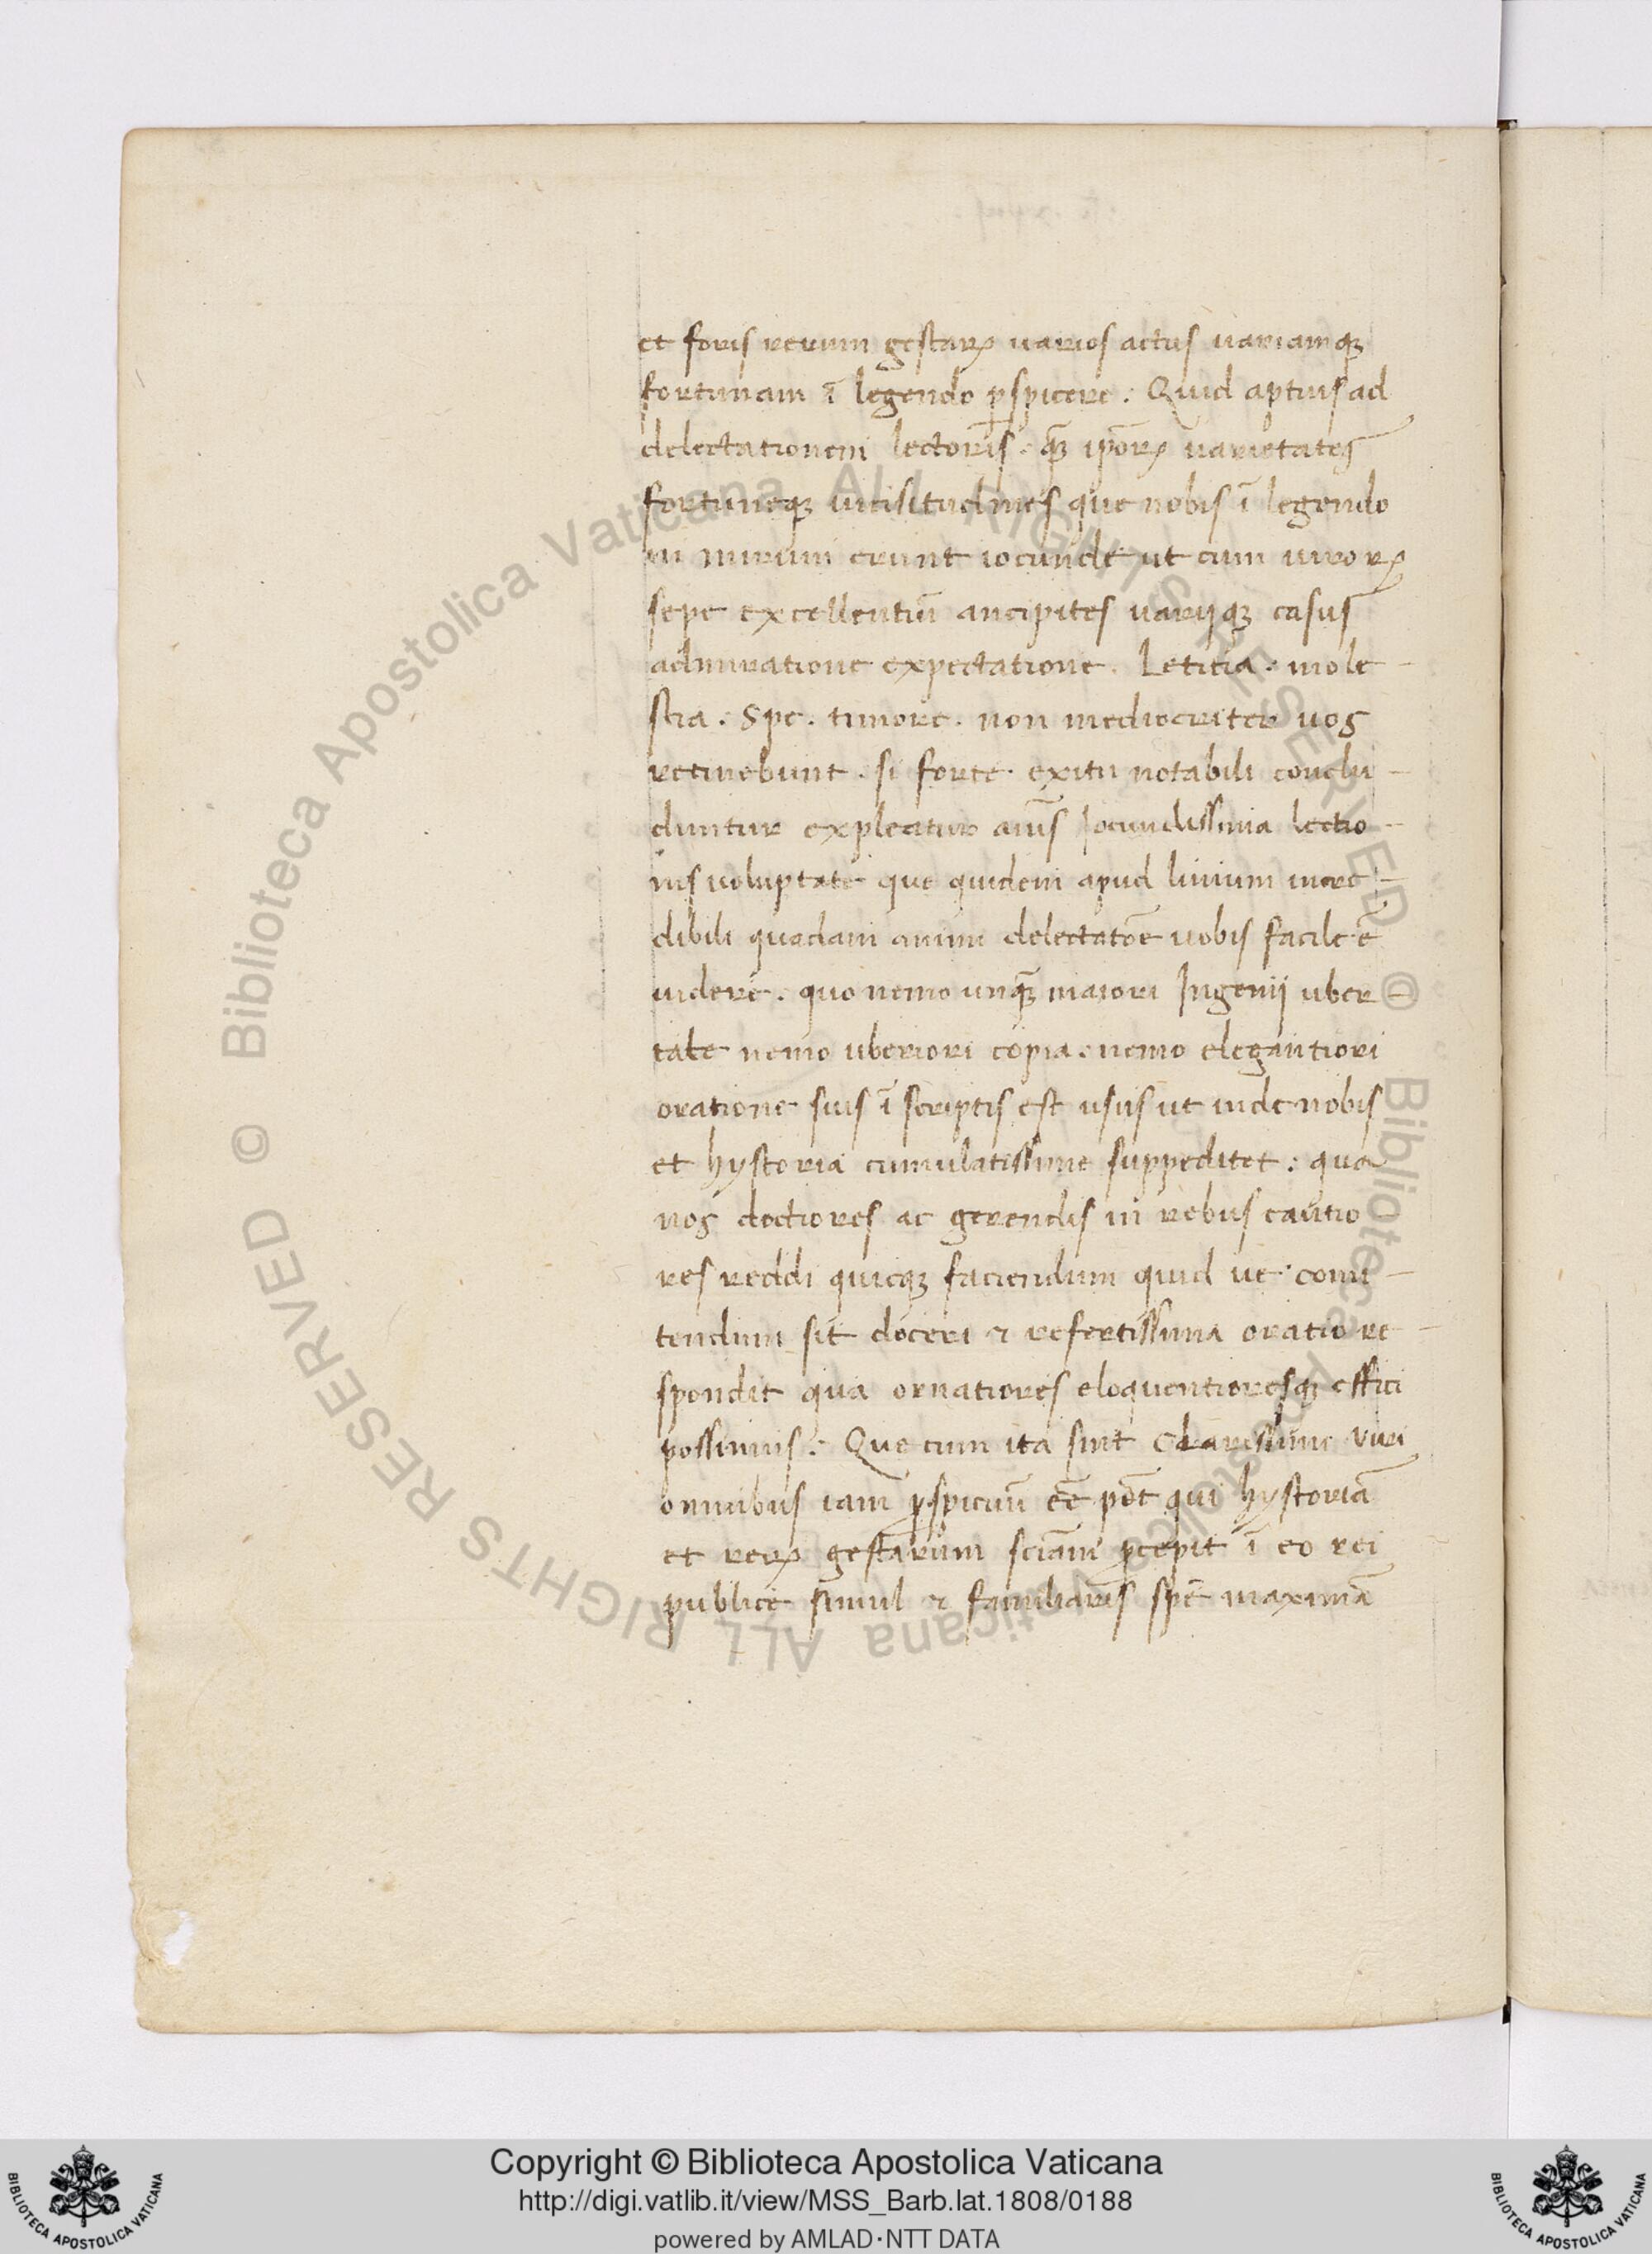 et foris rerum gestaꝝ uarios actus uariamqꝫ
fortunam ī legendo ꝑspicere : Quid aptius ad
delectationem lectoris . qꝫ̄ ip̄oꝝ uarietates
fortuneqꝫ uicisitudines que nobis ī legendo
ni mirum erunt iocunde ut cum uiroꝝ
sepe excellentiū ancipites uarijqꝫ casus
admiratione expectatione . Letitia . mole -
stia . Spe . timore . non mediocriter nos
retinebunt . si forte exitu notabili conclu -
duntur expleatur aīus Jocundissima lectio -
nis uoluptate que quidem apud liuium incre -
dibili quadam animi delectatōe nobis facile ē
uidere . quo nemo unqꝫ̄ maiori Jngenij uber -
tate nemo uberiori copia . nemo elegantiori
oratione suis ī scriptis est usus ut inde nobis
et hystoria cumulatissime suppeditet : qua
nos doctiores ac gerendis in rebus cautio
res reddi quicqꝫ faciendum quid ue comi -
tendum sit doceri & refertissima oratio re -
spondit qua ornatiores eloquentioresqꝫ effici
possimus : Que cum ita sint Clarissime viri
omnibus iam ꝑspicuū eē pōt qui hystoriā
et reꝝ gestarum sciām ꝑcepit ī eo rei
publice simul & familiaris spē maximā
Copyright © Biblioteca Apostolica Vaticana
http://digi.vatlib.it/view/MSS_Barb.lat.1808/0188
powered by AMLAD·NTT DATA
BIBLIOTECA APOSTOLICA VATICANA
BIBLIOTECA APOSTOLICA VATICANA
© Biblioteca Apostolica Vaticana ALL RIGHTS RESERVED © Biblioteca Apostolica Vaticana ALL RIGHTS RESERVED